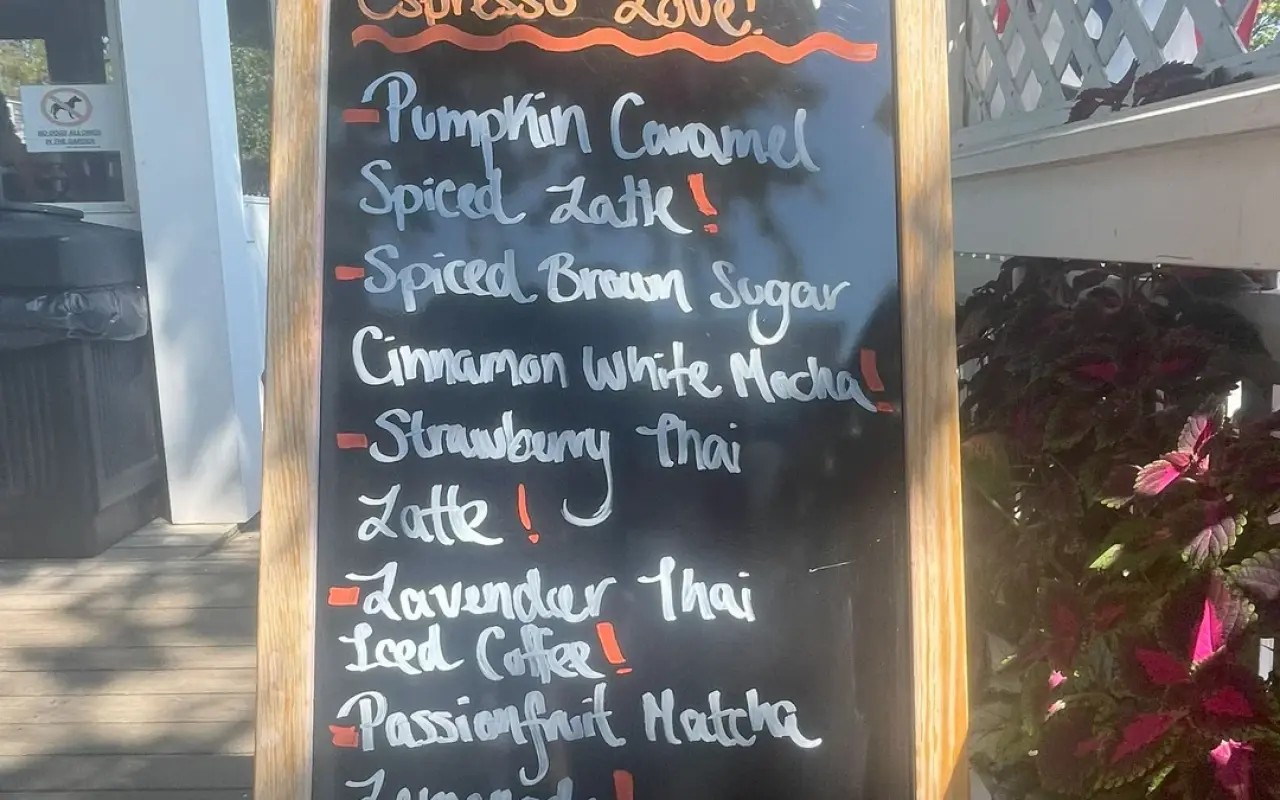 Espresso Love!
- Pumpkin Caramel
Spiced Latte!
- Spiced Brown Sugar
Cinnamon White Mocha!
- Strawberry Thai
Latte!
- Lavender Thai
Iced Coffee!
- Passionfruit Matcha
Lemonade!
NO DOGS ALLOWED
IN THE GARDEN